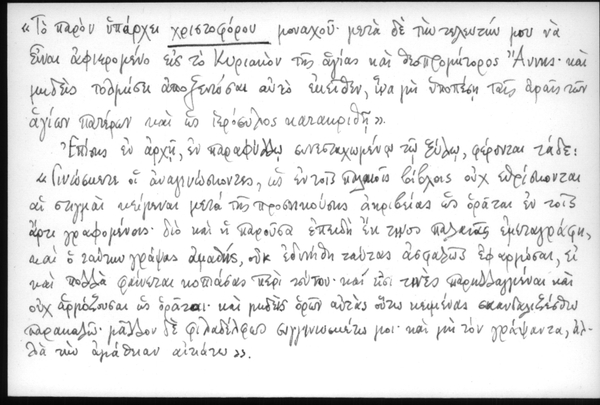 «Τὸ παρὸν ὑπάρχει χριστοφόρου μοναχοῦ· μετὰ δὲ τὴν τελευτήν μου νὰ
εἶναι ἀφιερομένο εἰς τὸ Κυριακὸν τῆς ἁγίας καὶ θεοπρομήτορος Ἄννης· καὶ
μηδεὶς τολμήσῃ ἀποξενῶσαι αὐτὸ ἐκεῖθεν, ἵνα μὴ ὑποπέσῃ ταῖς ἀραῖς τῶν
ἁγίων πατέρων καὶ ὡς ἱερόσυλος κατακριθῇ».
Ἐπίσης ἐν ἀρχῇ, ἐν παραφύλλῳ συνεσταχωμένῳ τῷ ξύλῳ, φέρονται τάδε:
«Γινώσκετε οἱ ἀναγινώσκοντες, ὡς ἐν τοῖς παλαιοῖς βίβλοις οὐχ εὑρίσκονται
αἱ στιγμαὶ κείμεναι μετὰ τῆς προσηκούσης ἀκριβείας ὡς ὁρᾶται ἐν τοῖς
ἄρτι γραφομένοις· διὸ καὶ ἡ παροῦσα ἐπειδὴ ἔκ τινος παλαιᾶς ἐμεταγράφη,
καὶ ὁ ταύτην γράψας ἀμαθής, οὐκ ἐδυνήθη ταύτας ἀσφαλῶς ἐφαρμόσαι, εἰ
καὶ πολλὰ φαίνεται κοπιάσας περὶ τούτου· καὶ εἰσὶ τινὲς παρηλλαγμέναι καὶ
οὐχ ἁρμόζουσαι ὡς ὁρᾶται· καὶ μηδεὶς ὁρῶν αὐτὰς οὕτω κειμένας σκανδαλιζέσθω
παρακαλῶ· μᾶλλον δὲ φιλαδέλφως συγγινωσκέτω μοι· καὶ μὴ τὸν γράψαντα, ἀλ-
λὰ τὴν ἀμάθειαν αἰτιάτω».